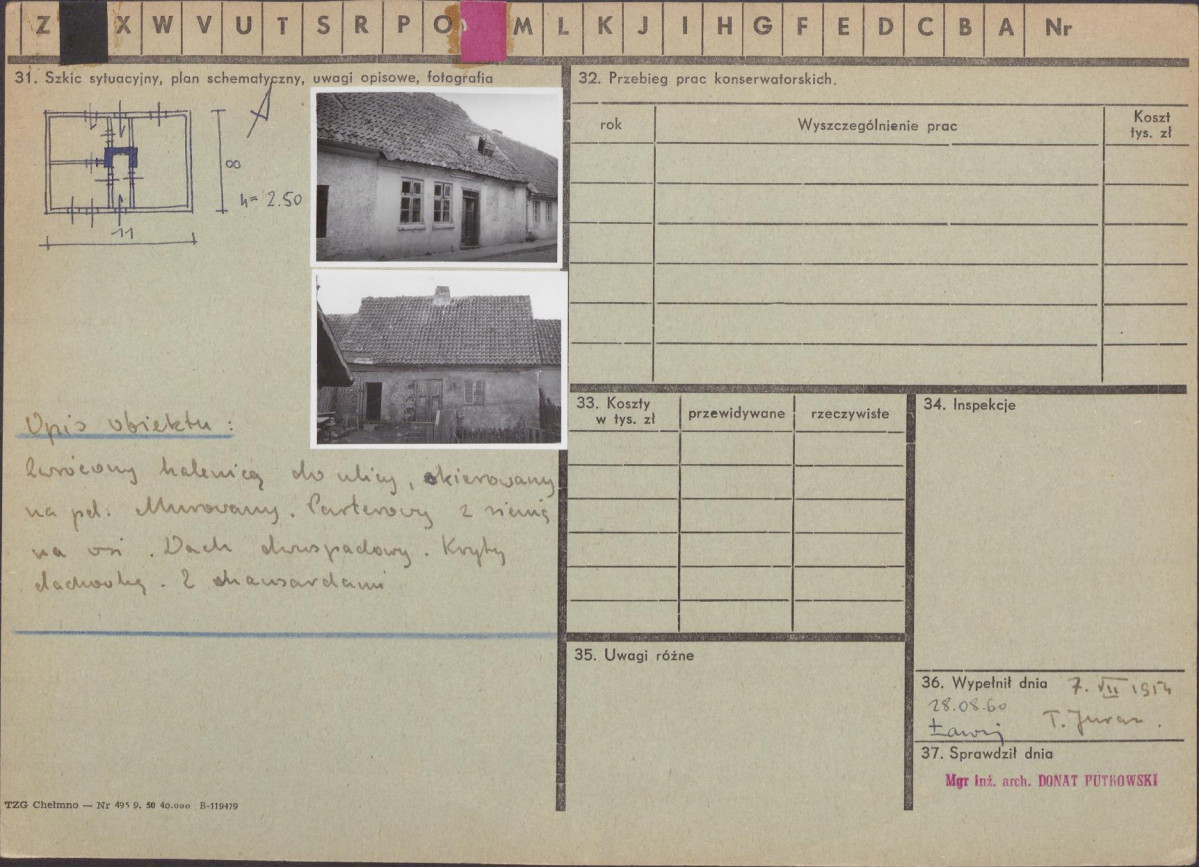 Z X W V U T S R P O M L K J I H G F E D C B A Nr
31. Szkic sytuacyjny, plan schematyczny, uwagi opisowe, fotografia
8
h= 2.50
11
Opis obiektu:
Zwrócony kalenicą do ulicy, skierowany
na pd. Murowany. Parterowy z sienią
na osi. Dach dwuspadowy. Kryty
dachówką. Z mansardami
TZG Chełmno — Nr 495 9. 50 40.000 B-119479
32. Przebieg prac konserwatorskich.
rok
Wyszczególnienie prac
Koszt
tys. zł
33. Koszty
w tys. zł
przewidywane
rzeczywiste
34. Inspekcje
35. Uwagi różne
36. Wypełnił dnia 7. VII
28.08.60
T.
37. Sprawdził dnia
Mgr inż. arch. DONAT PUTKOWSKI